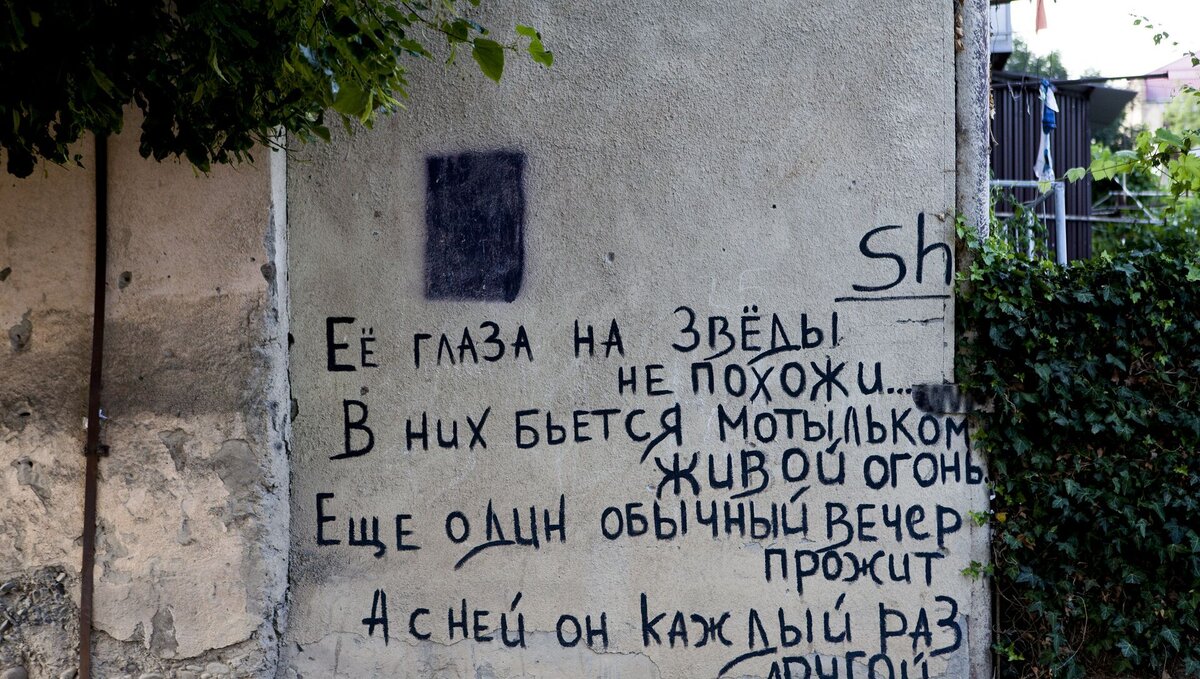 Sh
Её глаза на звёды
не похожи...
В них бьется мотыльком
живой огонь.
Еще один обычный вечер
прожит
А с ней он каждый раз
другой